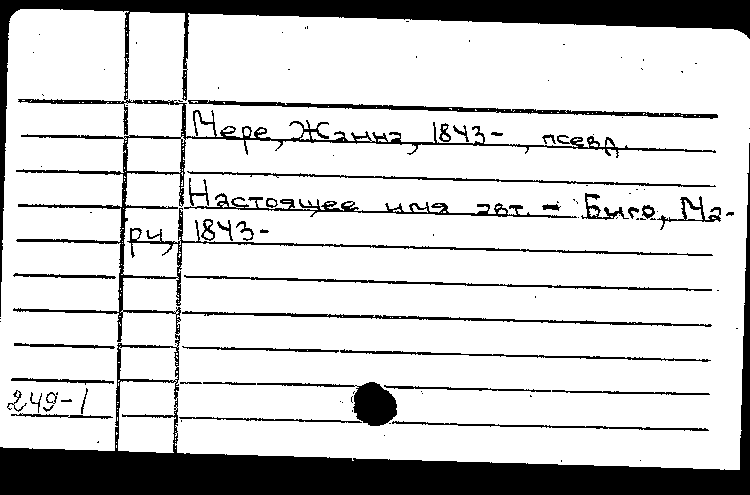 Мере, Жанна, 1843- , псевд.
Настоящее имя авт. = Биго, Ма-
ри, 1843-
249-1